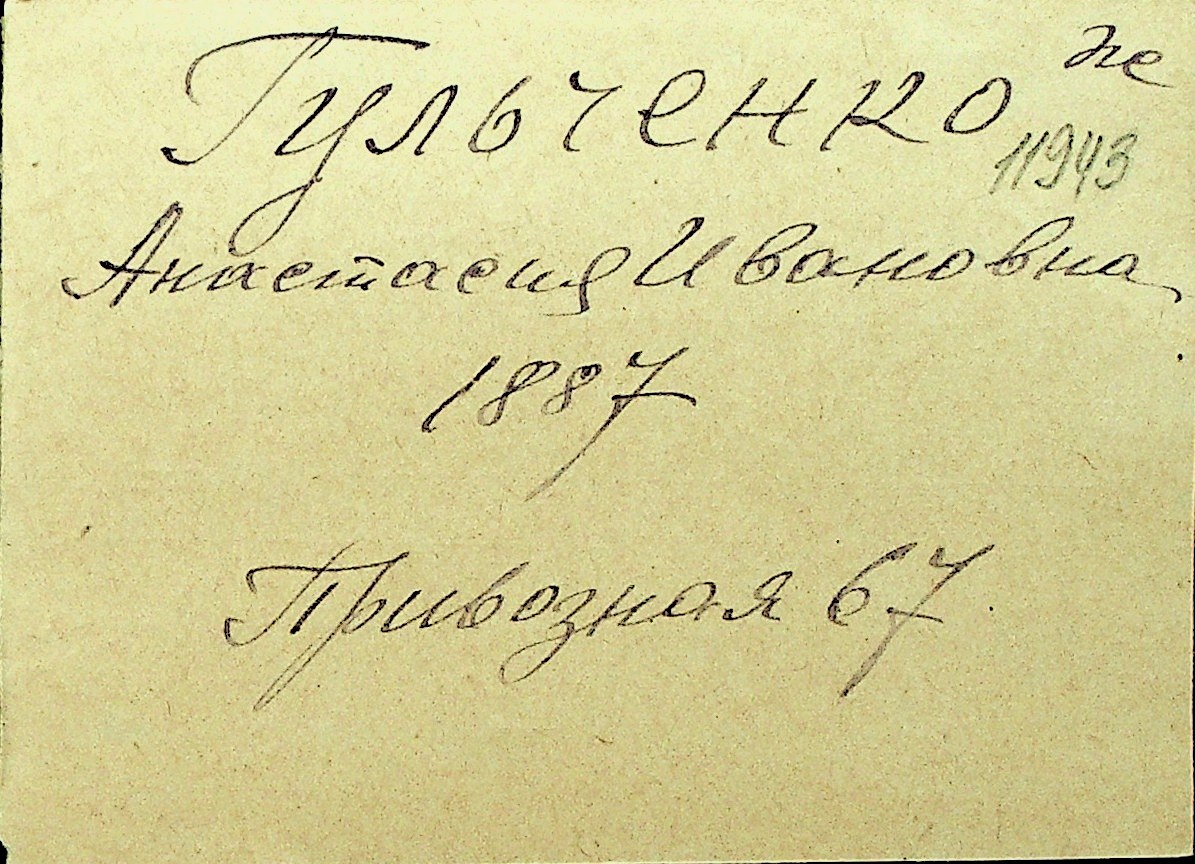 Гульченко
11943
Анастасия Ивановна
1887
Привозная 67